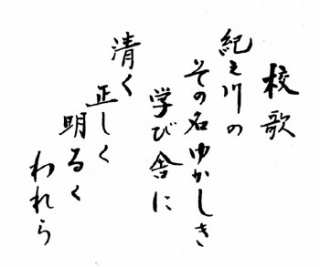 校歌
紀之川の
その名ゆかしき
学び舎に
清く
正しく
明るく
われら